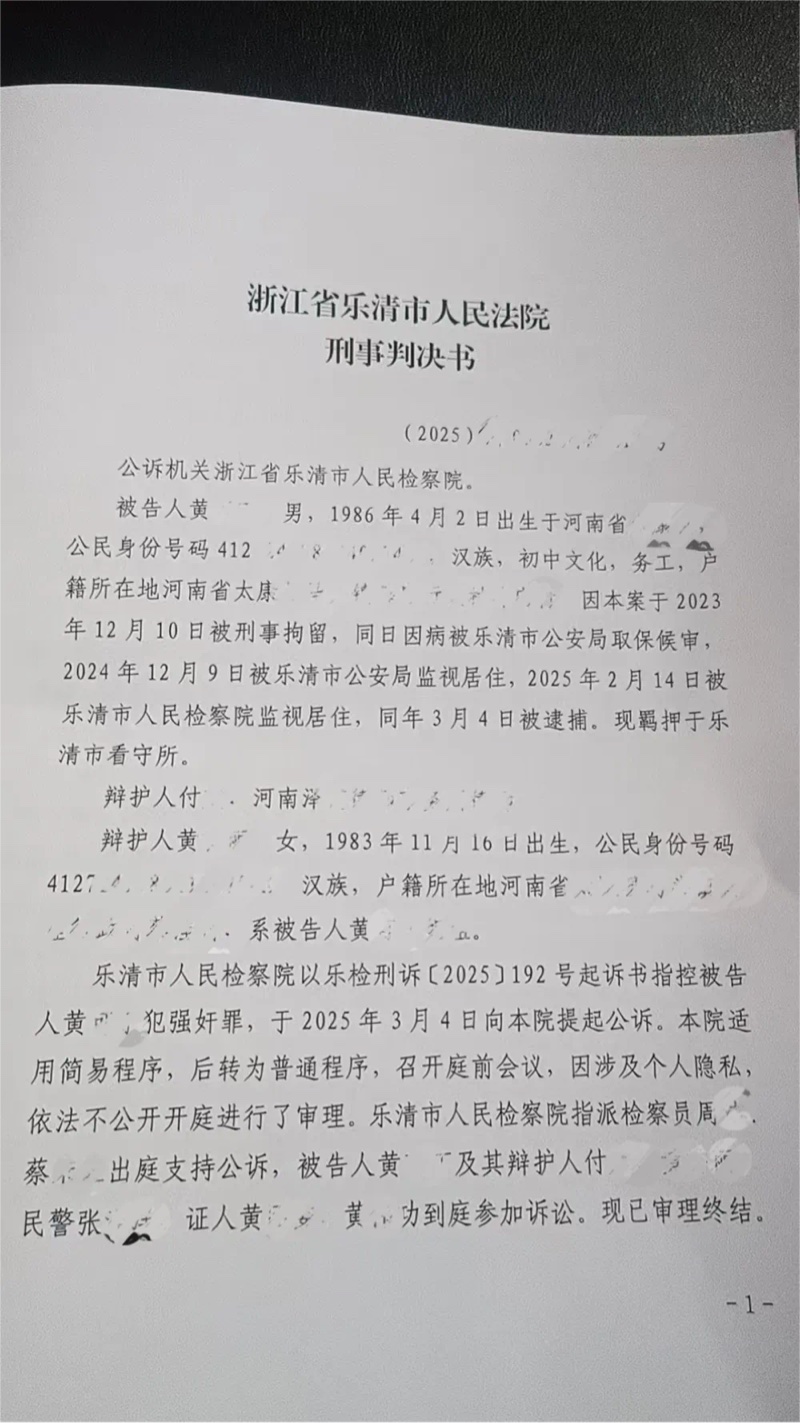 浙江省乐清市人民法院
刑事判决书
（2025）
公诉机关浙江省乐清市人民检察院。
被告人黄 男，1986年4月2日出生于河南省
公民身份号码412 汉族，初中文化，务工，户
籍所在地河南省太康 因本案于2023
年12月10日被刑事拘留，同日因病被乐清市公安局取保候审，
2024年12月9日被乐清市公安局监视居住，2025年2月14日被
乐清市人民检察院监视居住，同年3月4日被逮捕。现羁押于乐
清市看守所。
辩护人付 河南泽
辩护人黄 女，1983年11月16日出生，公民身份号码
4127 汉族，户籍所在地河南省
系被告人黄 。
乐清市人民检察院以乐检刑诉〔2025〕192号起诉书指控被告
人黄 犯强奸罪，于2025年3月4日向本院提起公诉。本院适
用简易程序，后转为普通程序，召开庭前会议，因涉及个人隐私，
依法不公开开庭进行了审理。乐清市人民检察院指派检察员周
蔡 出庭支持公诉，被告人黄 及其辩护人付
民警张 证人黄 黄 功到庭参加诉讼。现已审理终结。
-1-